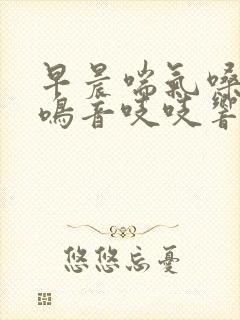 早晨喘氣嗓
鳴音吱吱響
悠悠忘憂